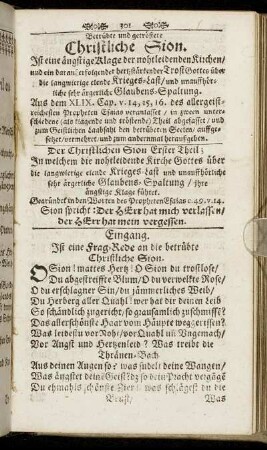 301
Betrübte und getröstete
Christliche Sion.
Ist eine ängstige Klage der nohtleidenden Kirchen/
und ein darauf erfolgender hertzstärkender Trost Gottes über
die langwierige elende Krieges-Last/ und unaufhör-
liche sehr ärgerliche Glaubens-Spaltung.
Aus dem XLIX. Cap. v. 14, 15, 16. des allergeist-
reichesten Propheten Esaias veranlasset/ in zween unter-
schiedene (als klagende und tröstende) Theil abgefasset/ und
zum Geistlichen Laabsahl den betrübten Seelen/ auffge-
setzet/ vermehret/ und zum andernmal heraußgeben.
Der Christlichen Sion Erster Theil;
In welchem die nohtleidende Kirche Gottes über
die langwierige elende Krieges-Last und unaufhörliche
sehr ärgerliche Glaubens-Spaltung/ ihre
ängstige Klage führet.
Gegründet in den Worten des Propheten Esaias c. 49. v. 14.
Sion spricht: Der HErr hat mich verlassen/
der HErr hat mein vergessen.
Eingang.
Ist eine Frag-Rede an die betrübte
Christliche Sion.
O Sion! mattes Hertz! O Sion du trostlose/
Du abgestreiffte Blum/ O du verwelkte Rose/
O du erschlagner Sin/ du jämmerliches Weib/
Du Herberg aller Quahl! wer hat dir deinen Leib
So schändlich zugericht/ so grausamlich zuschmißt?
Das allerschönste Haar vom Häupte weggerissen?
Was leidestu vor Noht/ vor Quahl uñ Ungemach/
Vor Angst und Hertzenleid? Was treibt die
Thränen-Bach
Aus deinen Augen so? was sudelt deine Wangen/
Was ängstet deinẽ Geist? dz so dein Pracht vergãgẽ
Du ehmahls schönste Zier? was schlägst du die
Brust/ Was